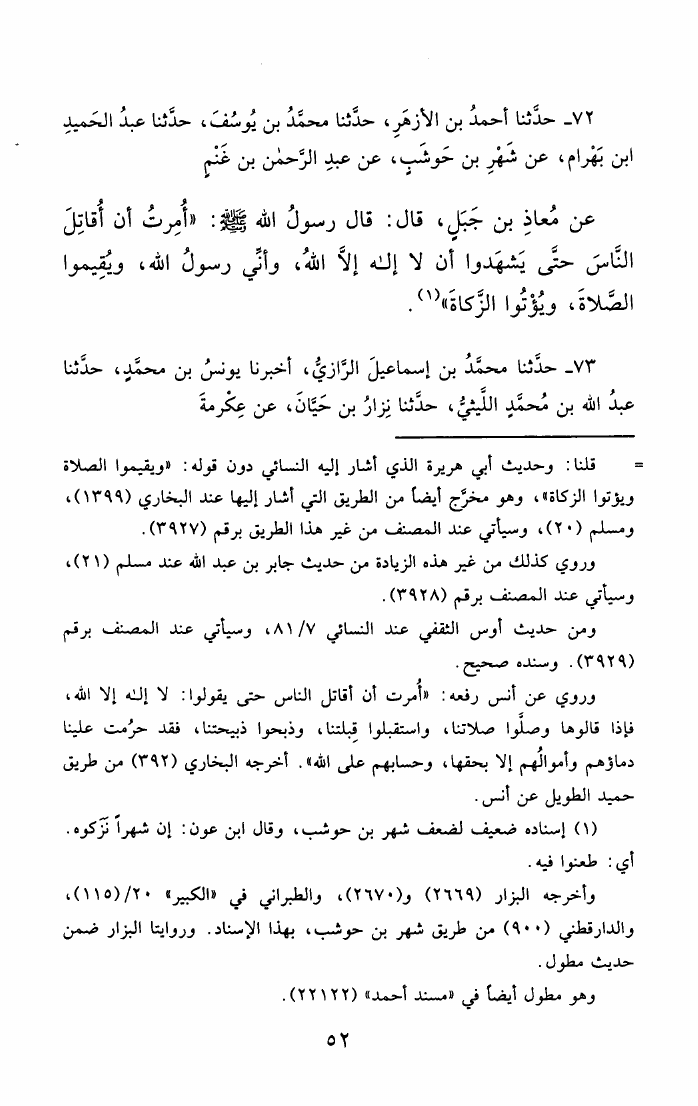 ٧٢ـ حدَّثنا أحمدُ بن الأزهَرِ، حدَّثنا محمَّدُ بن يُوسُفَ، حدَّثنا عبدُ الحَميدِ
ابن بَهْرام، عن شَهْرِ بن حَوشَبٍ، عن عبدِ الرَّحمٰن بن غَنْمٍ
عن مُعاذِ بن جَبَلٍ، قال: قال رسولُ الله ﷺ: «أُمِرتُ أن أُقاتِلَ
النَّاسَ حتَّى يَشهَدوا أن لا إلٰه إلاَّ اللهُ، وأنِّي رسولُ الله، ويُقِيموا
الصَّلاةَ، ويُؤْتُوا الزَّكاةَ»(١).
٧٣ـ حدَّثنا محمَّدُ بن إسماعيلَ الرَّازيُّ، أخبرنا يونسُ بن محمَّدٍ، حدَّثنا
عبدُ الله بن مُحمَّدٍ اللَّيثيُّ، حدَّثنا نِزارُ بن حَيَّانَ، عن عِكْرمةَ
= قلنا: وحديث أبي هريرة الذي أشار إليه النسائي دون قوله: «ويقيموا الصلاة
ويؤتوا الزكاة»، وهو مخرَّج أيضاً من الطريق التي أشار إليها عند البخاري (١٣٩٩)،
ومسلم (٢٠)، وسيأتي عند المصنف من غير هذا الطريق برقم (٣٩٢٧).
وروي كذلك من غير هذه الزيادة من حديث جابر بن عبد الله عند مسلم (٢١)،
وسيأتي عند المصنف برقم (٣٩٢٨).
ومن حديث أوس الثقفي عند النسائي ٧/ ٨١، وسيأتي عند المصنف برقم
(٣٩٢٩). وسنده صحيح.
وروي عن أنس رفعه: «أُمرت أن أقاتل الناس حتى يقولوا: لا إلٰه إلا الله،
فإذا قالوها وصلَّوا صلاتنا، واستقبلوا قِبلتنا، وذبحوا ذبيحتنا، فقد حرُمت علينا
دماؤهم وأموالُهم إلا بحقها، وحسابهم على الله». أخرجه البخاري (٣٩٢) من طريق
حميد الطويل عن أنس.
(١) إسناده ضعيف لضعف شهر بن حوشب، وقال ابن عون: إن شهراً نَزَكوه.
أي: طعنوا فيه.
وأخرجه البزار (٢٦٦٩) و(٢٦٧٠)، والطبراني في «الكبير» ٢٠/(١١٥)،
والدارقطني (٩٠٠) من طريق شهر بن حوشب، بهذا الإسناد. وروايتا البزار ضمن
حديث مطول.
وهو مطول أيضاً في «مسند أحمد» (٢٢١٢٢).
٥٢